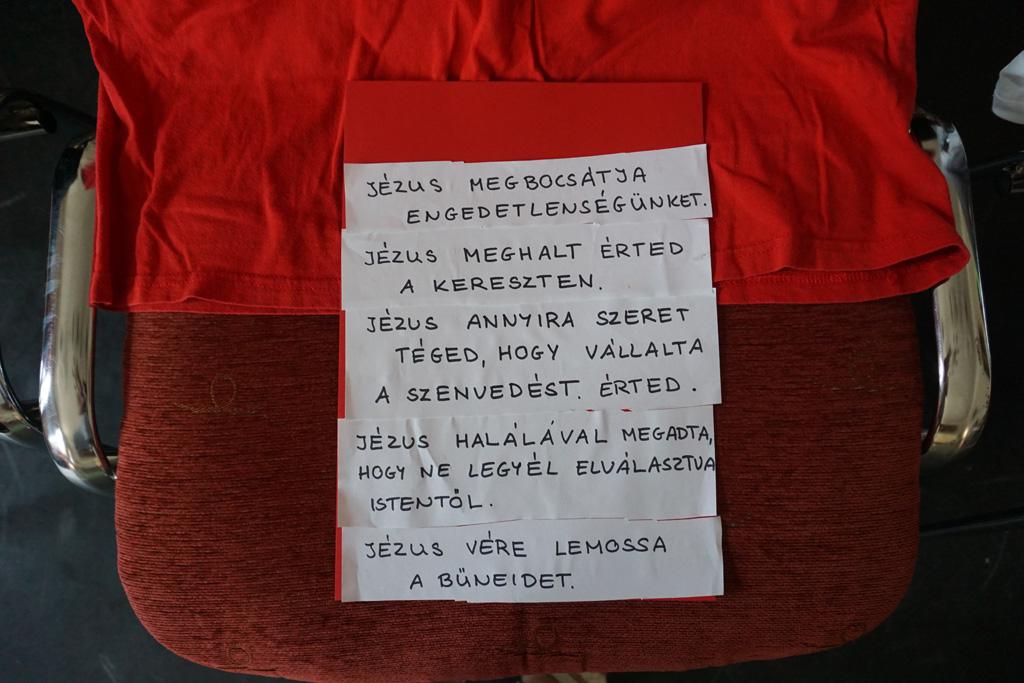 JÉZUS MEGBOCSÁTJA
ENGEDETLENSÉGÜNKET.
JÉZUS MEGHALT ÉRTED
A KERESZTEN.
JÉZUS ANNYIRA SZERET
TÉGED, HOGY VÁLLALTA
A SZENVEDÉST. ÉRTED.
JÉZUS HALÁLÁVAL MEGADTA,
HOGY NE LEGYÉL ELVÁLASZTVA
ISTENTŐL.
JÉZUS VÉRE LEMOSSA
A BŰNEIDET.